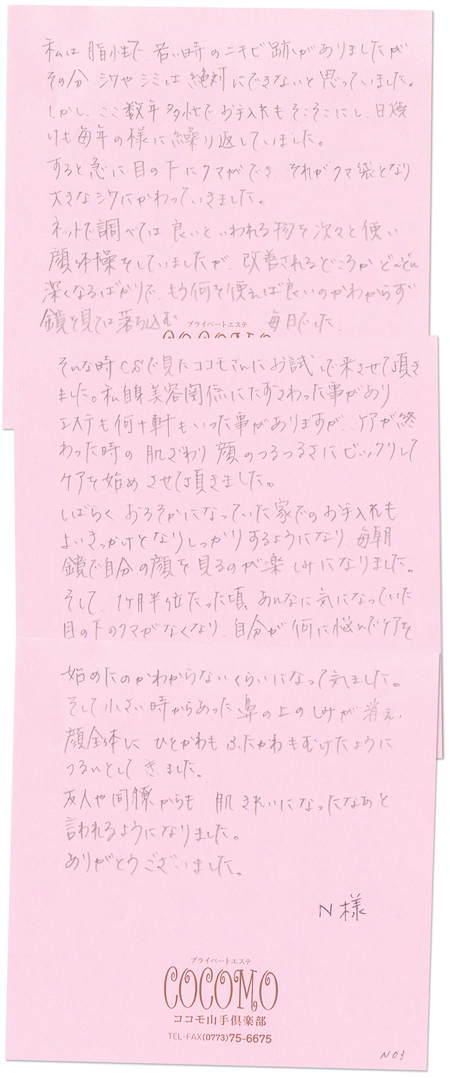 私は脂性で、若い時のニキビ跡がありましたが
その分シワやシミは絶対にできないと思っていました。
しかし、ここ数年多忙でお手入れもそこそこにし、日焼
けも毎年の様に繰り返していました。
すると急に目の下にクマができ、それがクマ袋となり
大きなシワにかわっていきました。
ネットで調べては良いといわれる物を次々と使い
顔体操をしていましたが、改善されるどころかどんどん
深くなるばかりで、もう何を使えば良いのかわからず
鏡を見ては落ち込む 毎日でした。
プライベートエステ
COCOMO
そんな時で見たココモさんにお試しで来させて頂き
ました。私自身美容関係にたずさわった事があり
エステも何十軒もいった事がありますが、ケアが終
わった時の肌ざわり顔のつるつるさにビックリして
ケアを始めさせて頂きました。
しばらくおろそかになっていた家でのお手入れも
よいきっかけとなりしっかりするようになり、毎朝
鏡で自分の顔を見るのが楽しみになりました。
そして、1ヶ月半位たった頃、あんなに気になっていた
目の下のクマがなくなり、自分が何に悩んでケアを
始めたのかわからないくらいになって気ました。
そして小さい時からあった鼻の上のしみが消え、
顔全体にひとかわもふたかわもむけたように
つるいとしてきました。
友人や同僚からも肌きれいになったなあと
言われるようになりました。
ありがとうございました。
N様
プライベートエステ
COCOMO
ココモ山手倶楽部
TEL・FAX(0773)75-6675
N03